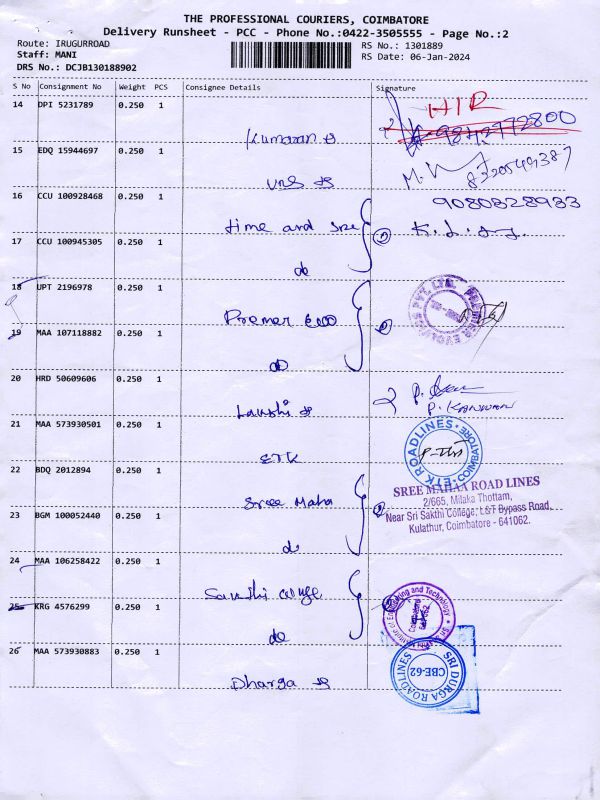 THE PROFESSIONAL COURIERS, COIMBATORE
Delivery Runsheet - PCC - Phone No.:0422-3505555 - Page No.:2
Route: IRUGURROAD
Staff: MANI
DRS No.: DCJB130188902
RS No.: 1301889
RS Date: 06-Jan-2024
S No Consignment No Weight PCS Consignee Details Signature
14 DPI 5231789 0.250 1
HIR
9842972800
Kumaran
15 EDQ 15944697 0.250 1
8220549387
16 CCU 100928468 0.250 1
9080828983
time and size
17 CCU 100945305 0.250 1
do
18 UPT 2196978 0.250 1
Premer
19 MAA 107118882 0.250 1
do
20 HRD 50609606 0.250 1
P. KANNAN
21 MAA 573930501 0.250 1
ETK
ETK ROADLINES COIMBATORE
22 BDQ 2012894 0.250 1
Sree Maha
SREE MAHAA ROAD LINES
2/665, Milaka Thottam,
Near Sri Sakthi College, L&T Bypass Road,
Kulathur, Coimbatore - 641062.
23 BGM 100052440 0.250 1
do
24 MAA 106258422 0.250 1
25 KRG 4576299 0.250 1
do
26 MAA 573930883 0.250 1
Dharga
SRI DURGA ROADLINES
CBE-62